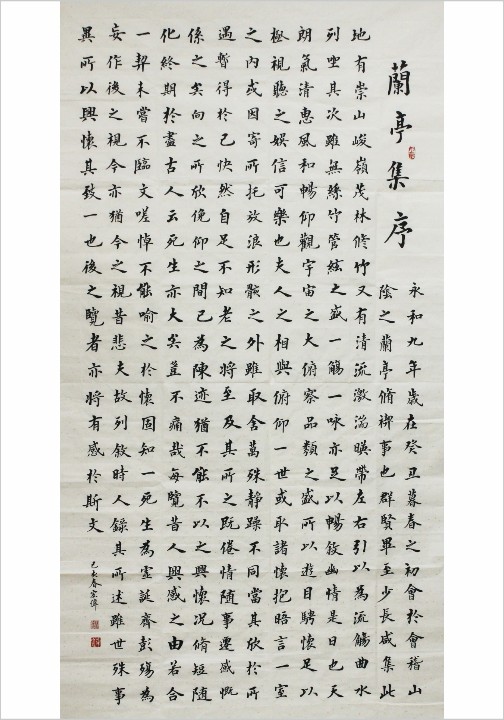 蘭亭集序
永和九年歲在癸丑暮春之初會於會稽山
陰之蘭亭脩禊事也群賢畢至少長咸集此
地有崇山峻嶺茂林脩竹又有清流激湍暎帶左右引以為流觴曲水
列坐其次雖無絲竹管絃之盛一觴一詠亦足以暢敘幽情是日也天
朗氣清惠風和暢仰觀宇宙之大俯察品類之盛所以遊目騁懷足以
極視聽之娛信可樂也夫人之相與俯仰一世或取諸懷抱晤言一室
之內或因寄所托放浪形骸之外雖取舍萬殊靜躁不同當其欣於所
遇暫得於己快然自足不知老之將至及其所之既倦情隨事遷感慨
係之矣向之所欣俛仰之間已為陳迹猶不能不以之興懷況脩短隨
化終期於盡古人云死生亦大矣豈不痛哉每覽昔人興感之由若合
一契未嘗不臨文嗟悼不能喻之於懷固知一死生為虛誕齊彭殤為
妄作後之視今亦猶今之視昔悲夫故列敘時人錄其所述雖世殊事
異所以興懷其致一也後之覽者亦將有感於斯文